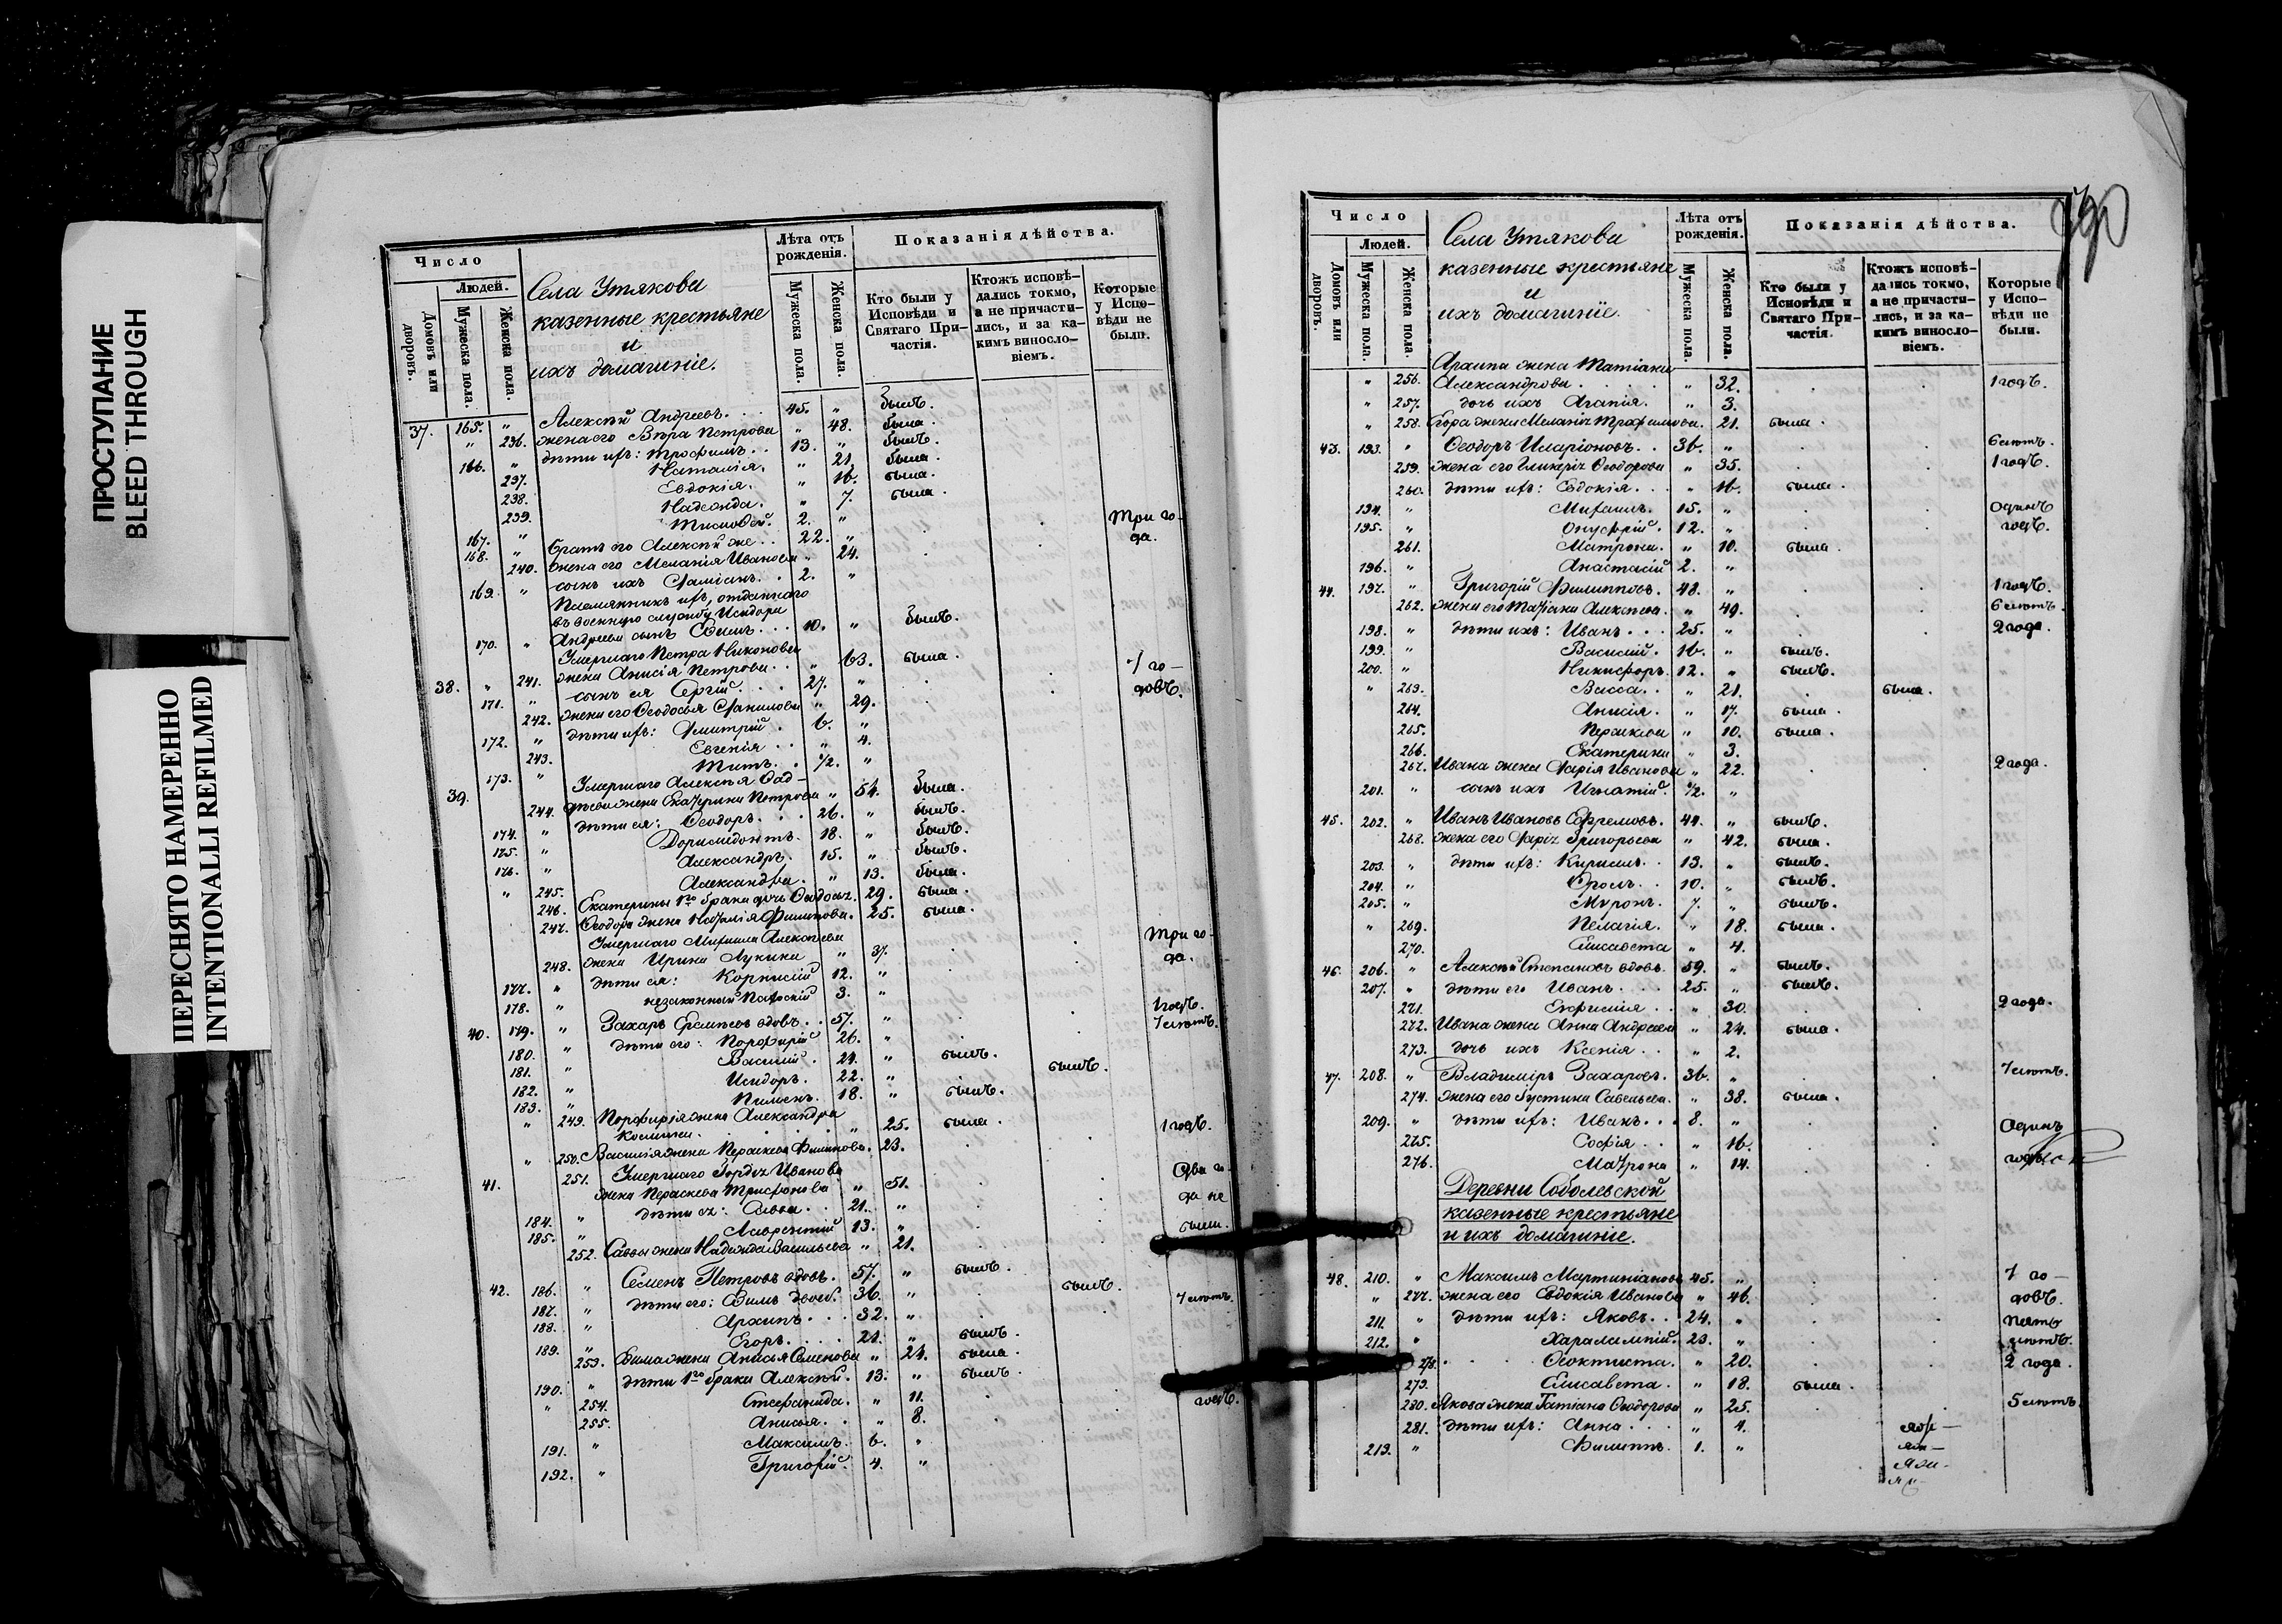 ПРОСТУПАНИЕ
BLEED THROUGH
ПЕРЕСНЯТО НАМЕРЕННО
INTENTIONALLI REFILMED
Число
Людей.
Домовъ или дворовъ.
Мужеска пола.
Женска пола.
Села Утякова
казенные крестьяне
и
ихъ домашніе.
Лѣта отъ рожденія.
Мужеска пола.
Женска пола.
Показанія дѣйства.
Кто были у Исповѣди и Святаго Причастія.
Ктожъ исповѣдались токмо, а не причастились, и за какимъ винословіемъ.
Которые у Исповѣди не были.
37. 165. " Алексѣй Андреевъ. 45. " былъ.
" 236. жена его Вѣра Петрова " 48. была.
166. " дѣти ихъ: Трофимъ. 13. " былъ.
237. Наталія. " 21. была.
238. Евдокія. " 16. была.
239. Надежда. " 7. была.
167. " Тимофей. 2. "
168. " братъ его Алексѣй же. 22. " три го-
240. жена его Меланія Иванова " 24. да.
169. " сынъ ихъ Даміанъ. 2. "
Племянникъ ихъ, отданнаго
въ военную службу Исидора
170. " Андреева сынъ Ефимъ. 10. " былъ.
Умершаго Петра Никонова
38. " 241. жена Анисія Петрова. " 63. была.
171. " сынъ ея Сергій. 27. " 7 го-
242. жена его Ѳеодосья Данилова " 29. довъ.
172. " дѣти ихъ: Дмитрій. 6. "
243. Евгенія " 4.
173. " Титъ. 1/2. "
39. Умершаго Алексѣя Ѳад-
244. дѣева жена Екатерина Петрова " 54. была.
174. " дѣти ея: Ѳеодоръ. 26. " былъ.
175. " Доримедонтъ. 18. " былъ.
176. " Александръ. 15. " былъ.
" 245. Александра. " 13. была.
246. Екатерины 1го брака дочь Ѳеодосья. 29. была.
247. Ѳеодора жена Наталія Филипова. 25. была.
Умершаго Михаила Алексѣева
248. жена Ирина Лукина " 37. три го-
177. " дѣти ея: Корнилій 12. " да.
178. " незаконный Пафомій 3. "
40. 179. " Захаръ Еремѣевъ вдовъ. 57. " 1 годъ.
180. " дѣти его: Порфирій 26. " 7 лѣтъ.
181. " Василій. 24. " былъ.
182. " Исидоръ. 22. " былъ.
183. " Пименъ. 18. " былъ.
" 249. Порфирія жена Александра
Косьмина. " 25. была.
" 250. Василія жена Параскева Филипова. 23. 1 годъ.
41. 251. Умершаго Гордѣя Иванова
жена Параскева Трифонова " 51. два го-
184. " дѣти ея: Савва. 21. " да не
185. " Лаврентій 13. " были.
252. Саввы жена Надежда Васильева " 21.
42. 186. " Семенъ Петровъ вдовъ. 57. " былъ.
187. " дѣти его: 36. " былъ.
188. " Архипъ. 32. " 7 лѣтъ.
189. " Егоръ. 21. " былъ.
253. жена Анисья Семенова " 24. была.
190. " дѣти 1го брака Алексѣй. 13. " былъ.
" 254. Стефанида. " 11. годъ.
255. Анисья. " 8.
191. " Максимъ. 6. "
192. " Григорій. 4. "
Число
Людей.
Домовъ или дворовъ.
Мужеска пола.
Женска пола.
Села Утякова
казенные крестьяне
и
ихъ домашніе.
Лѣта отъ рожденія.
Мужеска пола.
Женска пола.
Показанія дѣйства.
Кто были у Исповѣди и Святаго Причастія.
Ктожъ исповѣдались токмо, а не причастились, и за какимъ винословіемъ.
Которые у Исповѣди не были.
Архипа жена Татіана
" 256. Александрова " 32. 1 годъ.
" 257. дочь ихъ Агапія. " 3.
" 258. Егора жена Меланія Трофимова. 21. была.
43. 193. " Ѳеодоръ Иларіоновъ. 36. " 6 лѣтъ.
259. жена его Гликерія Ѳеодорова " 35. 1 годъ.
260. дѣти ихъ: Евдокія. " 16. была.
194. " Михаилъ. 15. " Одинъ
195. " Онуфрій. 12. " годъ.
261. Матрона. " 10. была.
196. " Анастасій 2. "
44. 197. " Григорій Филипповъ. 48. " 1 годъ.
262. жена его Татіана Алексѣева. " 49. 6 лѣтъ.
198. " дѣти ихъ: Иванъ. 25. " 2 года.
199. " Василій. 16. " былъ.
200. " Никифоръ. 12. " былъ.
" 263. Васса. " 21. была.
264. Анисія. " 17. была.
265. Параскева " 10. была.
266. Екатерина " 3.
267. Ивана жена Дарія Иванова " 22. 2 года.
201. " сынъ ихъ Игнатій. 1/2. "
45. 202. " Иванъ Ивановъ Ефремовъ. 44. " былъ.
268. жена его Дарія Григорьева " 42. была.
203. " дѣти ихъ: Кириллъ. 13. " былъ.
204. " 10. " былъ.
205. " Муронъ. 7. " былъ.
" 269. Пелагія. " 18. была.
270. Елисавета " 4.
46. 206. " Алексѣй Степановъ вдовъ. 59. " былъ.
207. " дѣти его Иванъ. 25. " былъ.
271. Евфимія. " 30. 2 года.
272. Ивана жена Анна Андреева " 24. была.
273. дочь ихъ Ксенія. " 2.
47. 208. " Владиміръ Захаровъ. 36. " 7 лѣтъ.
274. жена его Іустина Савельева. " 38. была.
209. " дѣти ихъ: Иванъ. 8. " Одинъ
275. Софія " 16. годъ.
276. Матрона " 14.
Деревни Соболевской
казенные крестьяне
и ихъ домашніе.
48. 210. " Максимъ Мартиніановъ 45. " 7 го-
" 277. жена его Евдокія Иванова " 46. довъ.
211. " дѣти ихъ: Яковъ. 24. " пять
212. " Харалампій. 23. " лѣтъ.
278. Ѳеоктиста. " 20. 2 года.
279. Елисавета. " 18. была.
280. Якова жена Татіана Ѳеодорова " 25. 5 лѣтъ
281. дѣти ихъ: Анна " 4.
213. " Филиппъ. 1. "